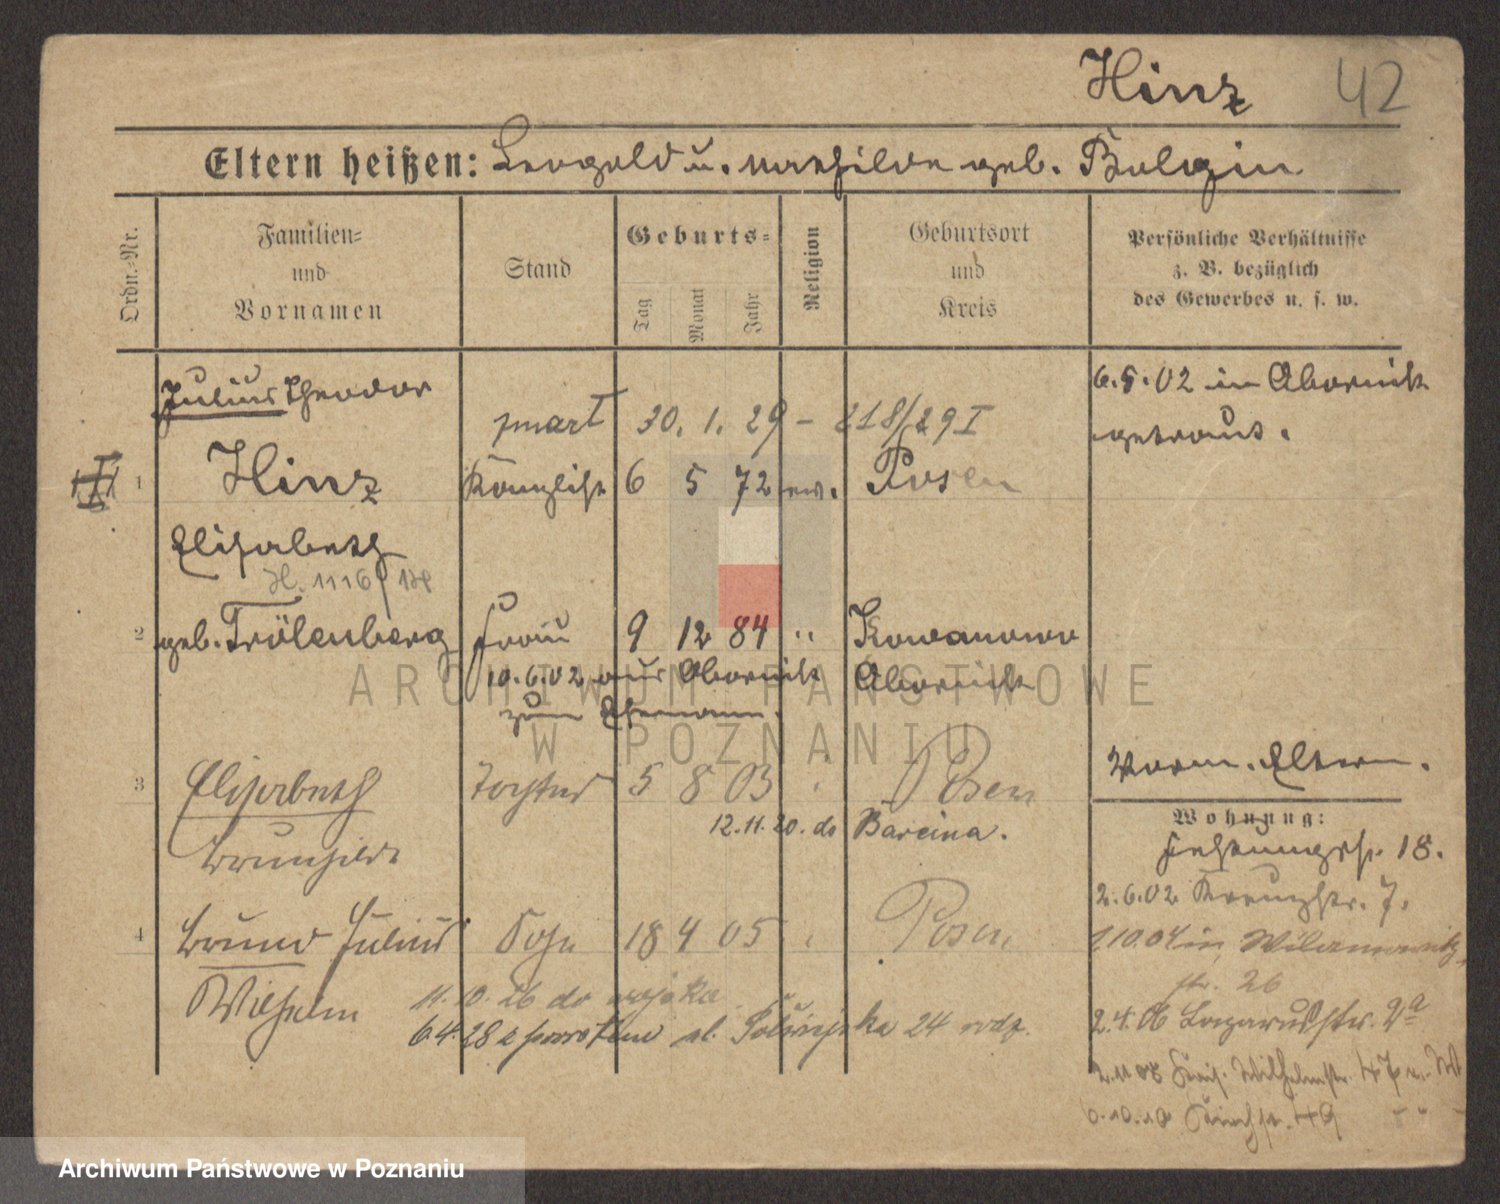 Hinz 42
Eltern heißen: Leopold u. Mathilde geb. Bolgin
Ordn.-Nr.
Familien-
und
Vornamen
Stand
Geburts-
Tag
Monat
Jahr
Religion
Geburtsort
und
Kreis
Persönliche Verhältnisse
z. B. bezüglich
des Gewerbes u. s. w.
Julius Theodor
6.5.02 in Obornik
getraut.
zmarł 30. 1. 29 - 218/29 I
1 Hinz Kanzlist 6 5 72 ev. Posen
Elisabeth
H. 1116
2 geb. Trölenberg Frau 9 12 84 " Kowanowo
10.6.02 aus Obornik Obornik
zum Ehemann.
3 Elisabeth Tochter 5 8 03 " Posen
Vorm. Eltern.
12.11.20. do Barcina.
Brunhilde
Wohnung:
Festungsstr. 18.
2.6.02 Kreuzstr. 7.
4 Bruno Julius Sohn 18 4 05 " Posen
1 10 04 in Wilamowitz
str. 26
Wilhelm
11. 10. 26 do wojska
2.4.06 Lazarusstr. 2a
6.4.28 z powrotem ul. 24 rodz.
2.11 08 Wilhelmstr. 47
6.10.10 Kirchstr. 49
ARCHIWUM PAŃSTWOWE
W POZNANIU
Archiwum Państwowe w Poznaniu